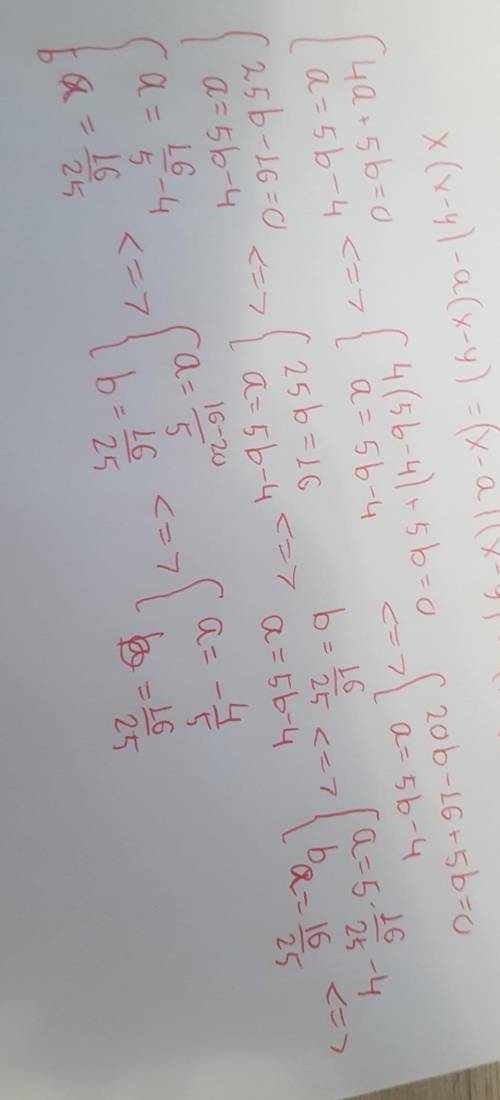 x(x-y)-a(x-y)=(x-a)(x-y)
{4a+5b=0 a=5b-4 <=> {4(5b-4)+5b=0 a=5b-4 <=> {20b-16+5b=0 a=5b-4
{25b-16=0 a=5b-4 <=> {25b=16 a=5b-4 <=> b=16/25 a=5b-4 <=> {a=5·16/25-4 b=16/25 <=>
{a=16/5-4 b=16/25 <=> {a=16-20/5 b=16/25 <=> {a=-4/5 b=16/25